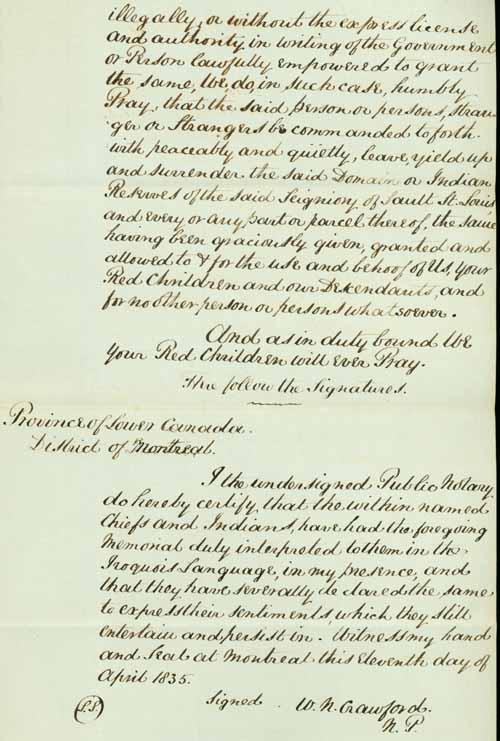 illegally, or without the express license
and authority in writing of the Government
or Person lawfully empowered to grant
the same, We, do, in such case, humbly
Pray, that the said person or persons, stran
ger or Strangers be commanded to forth-
with peaceably and quietly, leave, yield up
and surrender the said Domain or Indian
Reserves of the said Seigniory of Sault St. Louis
and every or any part or parcel thereof, the same
having been graciously given, granted and
allowed to & for the use and behoof of Us, Your
Red Children and our Descendants, and
for no other person or persons whatsoever.
And as in duty bound We
Your Red Children will ever Pray.
Here follow the Signatures.
Province of Lower Canada.
District of Montreal.
I the undersigned Public Notary
do hereby certify that the within named
Chiefs and Indians, have had the foregoing
Memorial duly interpreted to them in the
Iroquois Language, in my presence, and
that they have severally declared the same
to express their sentiments, which they still
entertain and persist in. Witness my hand
and Seal at Montreal this Eleventh day of
April 1835.
Signed W. N. Crawford.
N. P.
L.S.